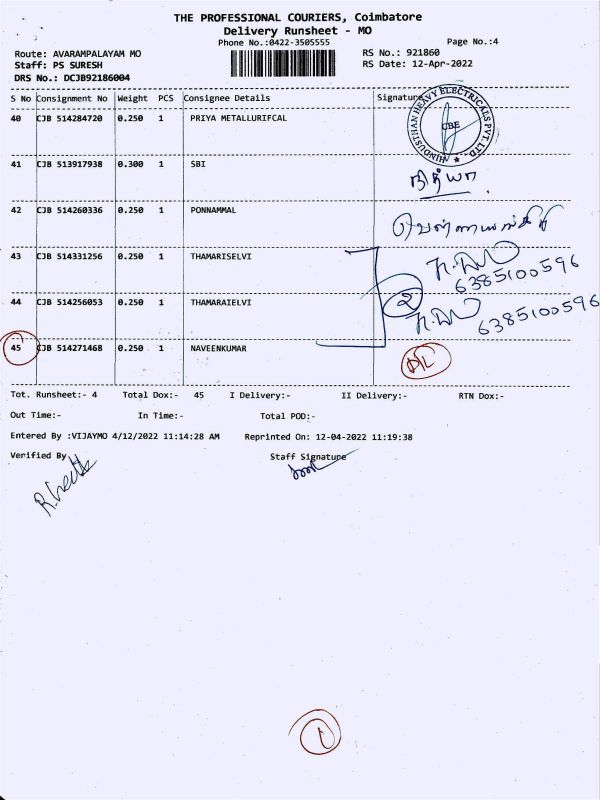 THE PROFESSIONAL COURIERS, Coimbatore
Delivery Runsheet - MO
Phone No.:0422-3505555
Page No.:4
Route: AVARAMPALAYAM MO
RS No.: 921860
Staff: PS SURESH
RS Date: 12-Apr-2022
DRS No.: DCJB92186004
S No Consignment No Weight PCS Consignee Details Signature
HINDUSTHAN HEAVY ELECTRICALS PVT. LTD. ★
CBE
40 CJB 514284720 0.250 1 PRIYA METALLURIFCAL
41 CJB 513917938 0.300 1 SBI
நித்யா
42 CJB 514260336 0.250 1 PONNAMMAL
43 CJB 514331256 0.250 1 THAMARISELVI
6385100596
2
44 CJB 514256053 0.250 1 THAMARAIELVI
6385100596
45 CJB 514271468 0.250 1 NAVEENKUMAR
Tot. Runsheet:- 4 Total Dox:- 45 I Delivery:- II Delivery:- RTN Dox:-
Out Time:- In Time:- Total POD:-
Entered By :VIJAYMO 4/12/2022 11:14:28 AM Reprinted On: 12-04-2022 11:19:38
Verified By Staff Signature
1